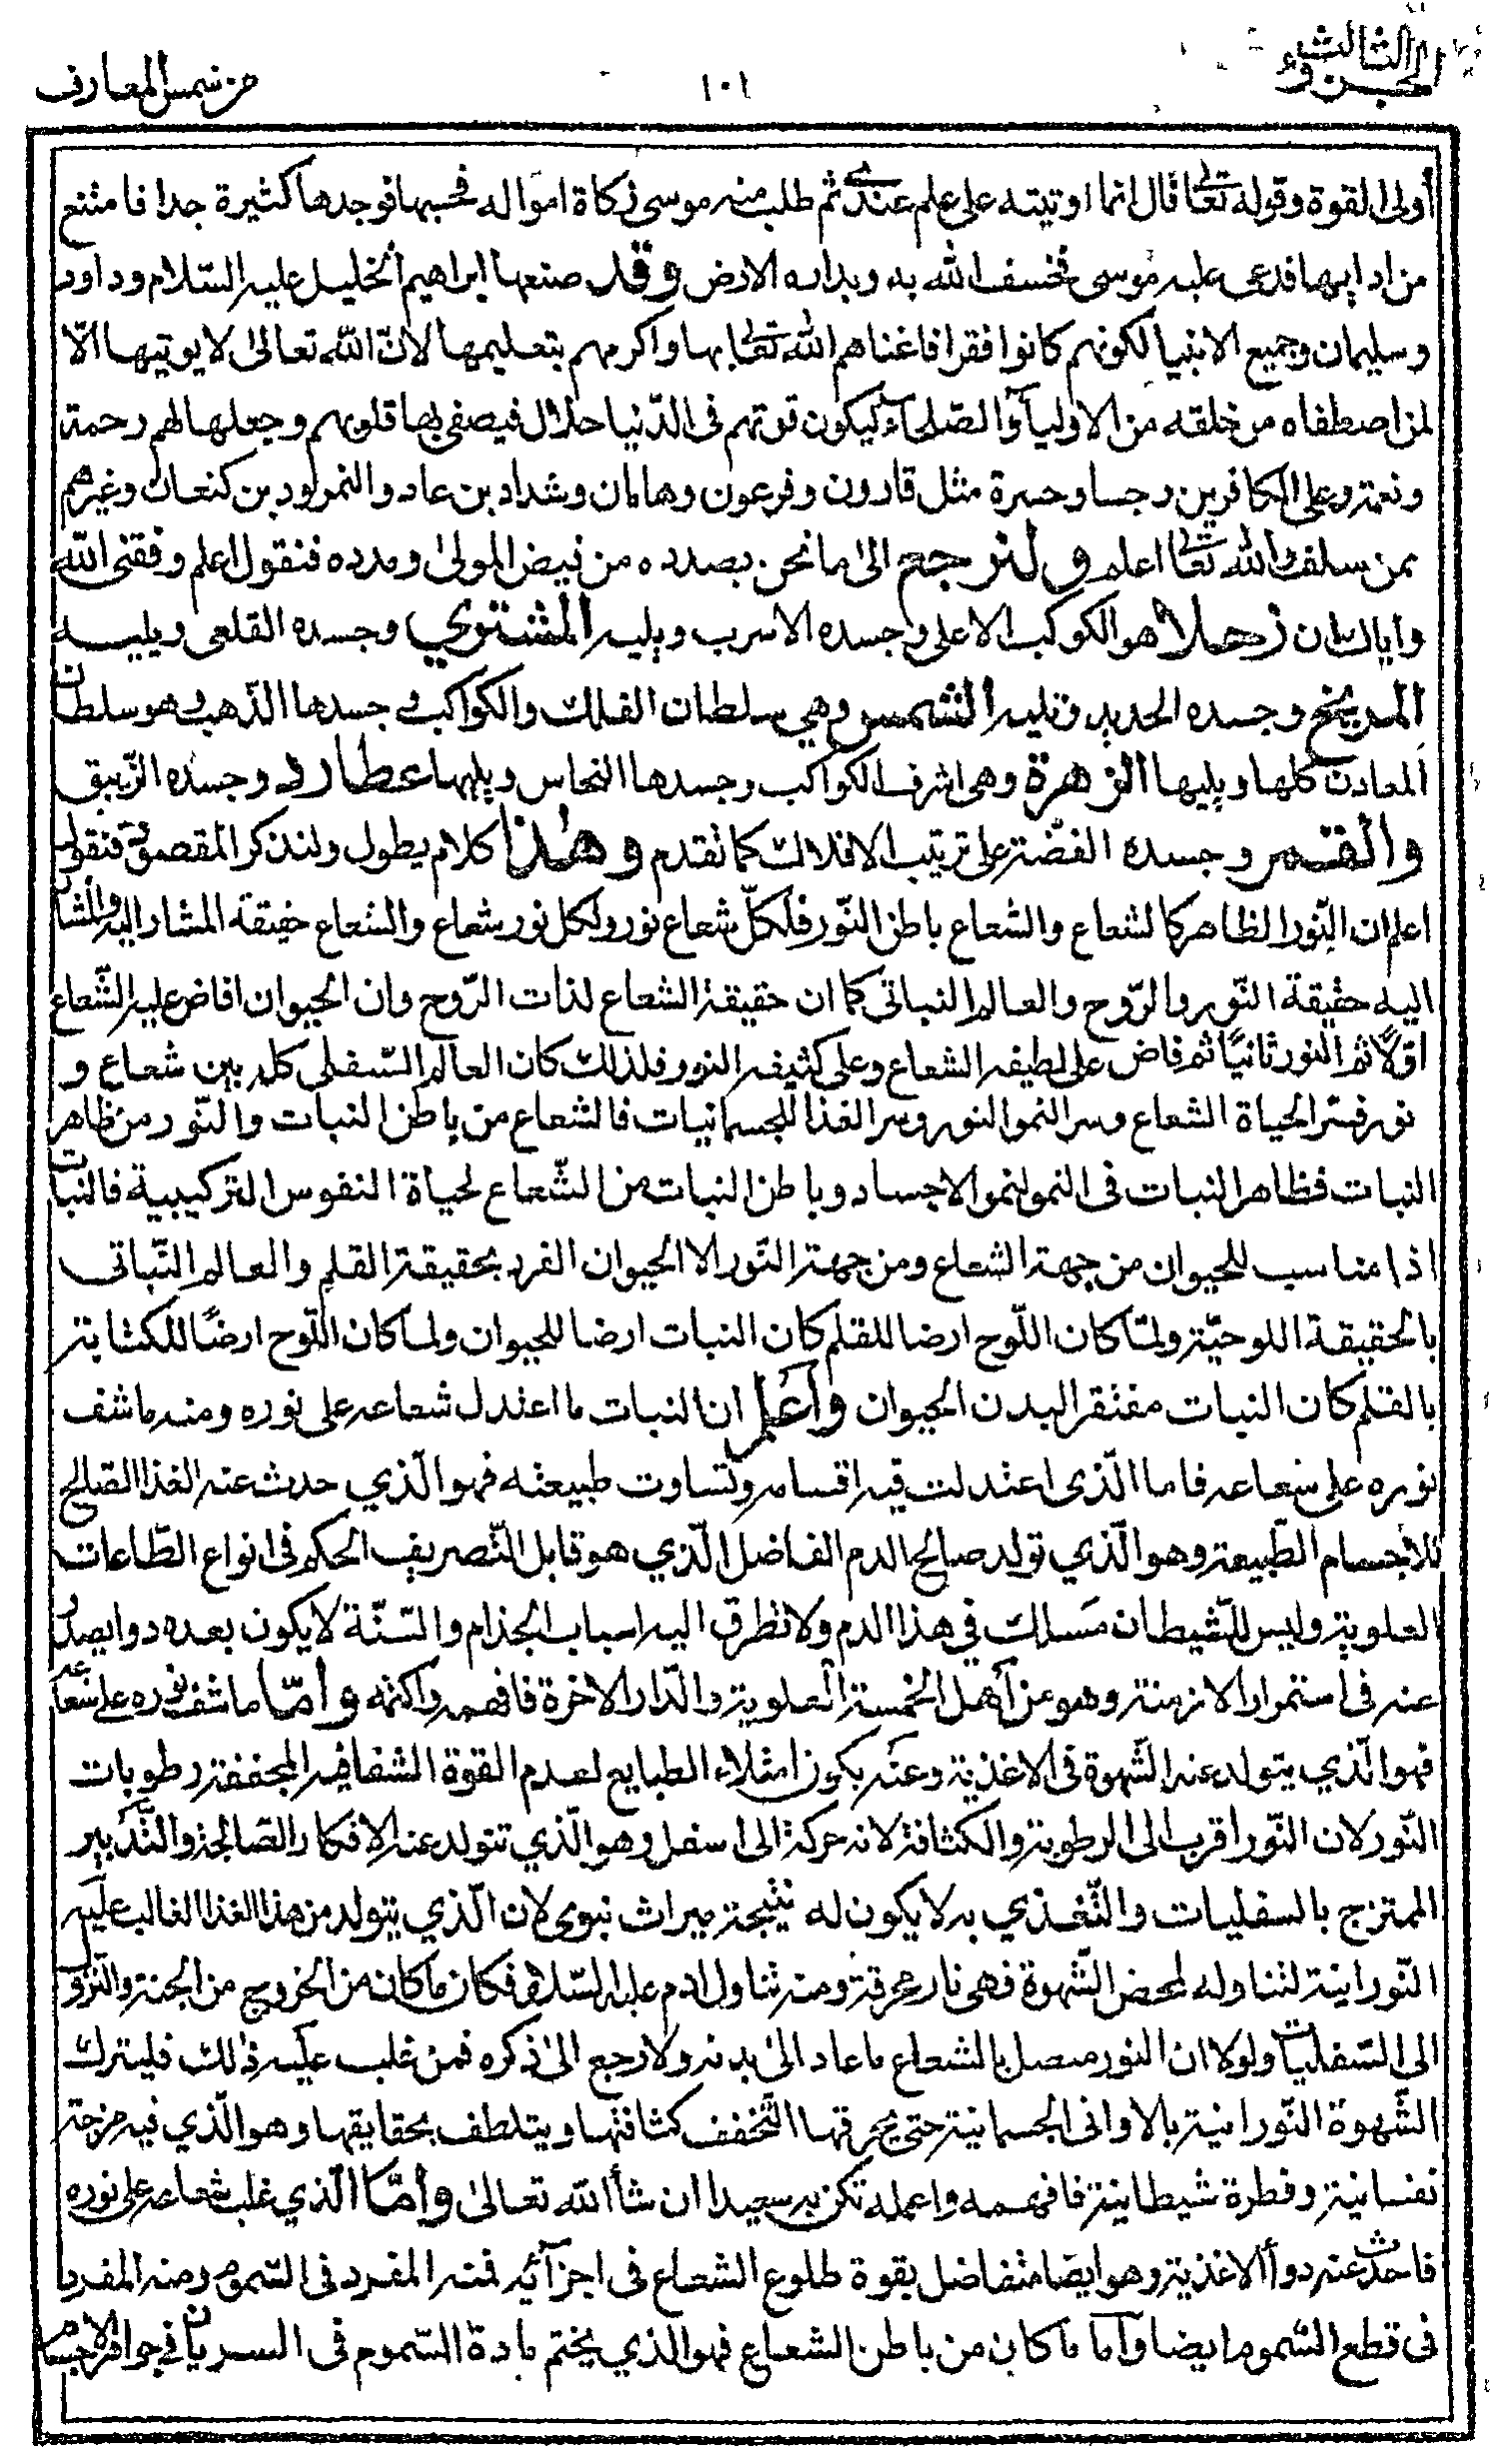 الجزء الثالث
١٠١
من شمس المعارف
أولى القوة وقوله تعالى قال انما اوتيته على علم عندى ثم طلب منه موسى زكاة امواله فحسبها فوجدها كثيرة جدا فامتنع
من ادايها فدعى عليه موسى فخسف الله به وبداره الارض وقد صنعها ابراهيم الخليل عليه السّلام وداود
وسليمان وجميع الانبيا لكونهم كانوا فقرا فاغناهم الله تعالى بها واكرمهم بتعليمها لانّ الله تعالىٰ لا يوتيها الّا
لمن اصطفاه من خلقه من الاوليآ والصّلحآء ليكون قوتهم فى الدّنيا حلال فيصفى بها قلوبهم وجعلها لهم رحمة
ونعمة وعلى الكافرين رجسا وحسرة مثل قارون وفرعون وهامان وشداد بن عاد والنمرود بن كنعان وغيرهم
ممن سلف والله تعالى اعلم ولنرجع الىٰ ما نحن بصدده من فيض المولىٰ ومدده فنقول اعلم وفقنى الله
واياك ان زحلا هو الكوكب الاعلى وجسده الاسرب ويليه المشتري وجسده القلعى ويليه
المريخ وجسده الحديد وتليه الشمس وهي سلطان الفلك والكواكب وجسدها الذّهب وهو سلطان
المعادن كلها ويليها الزهرة وهى اشرف الكواكب وجسدها النحاس ويليها عطارد وجسده الزّيبق
والقمر وجسده الفضّة على ترتيب الافلاك كما تقدم وهذا كلام يطول ولنذكر المقصود فنقول
اعلم ان النّور الظاهر كالشعاع والشعاع باطن النّور فلكلّ شعاع نور ولكل نور شعاع والشعاع حقيقة المشار اليه والمشار
اليه حقيقة النّور والرّوح والعالم النباتى كما ان حقيقة الشعاع لذات الرّوح وان الحيوان افاض عليه الشّعاع
اوّلاً ثم النور ثانيًا ثم فاض على لطيفه الشعاع وعلى كثيفه النور فلذلك كان العالم السّفلى كله بين شعاع و
نور فسّر الحياة الشعاع وسر النمو النور وسر الغذا للجسمانيات فالشعاع من باطن النبات والنّور من ظاهر
النبات فظاهر النبات فى النمو لنمو الاجساد وباطن النبات من الشّعاع لحياة النفوس التركيبية فالنبات
اذا مناسب للحيوان من جهة الشعاع ومن جهة النّور الا الحيوان الفرد بحقيقة القلم والعالم النّباتى
بالحقيقة اللوحيّة ولمّا كان اللّوح ارضا للقلم كان النبات ارضا للحيوان ولما كان اللّوح ارضًا للكتابة
بالقلم كان النبات مفتقر البدن الحيوان وأعلم ان النبات ما اعتدل شعاعه على نوره ومنه ما شف
نوره على شعاعه فاما الّذى اعتدلت فيه اقسامه وتساوت طبيعته فهو الّذي حدث عنه الغذا الصّالح
للاجسام الطّبيعة وهو الّذي تولد صالح الدم الفاضل الّذي هو قابل التّصريف الحكم فى انواع الطّاعات
العلوية وليس للشّيطان مسلك في هذا الدم ولا تطرق اليه اسباب الجذام والسّنّة لا يكون بعده دوا يصدر
عنه فى استمرار الازمنة وهو من أهل الخمسة العلوية والدّار الاخرة فافهمه واكتمه وأمّا ما شف نوره على شعاعه
فهو الّذي يتولد عنه الشّهوة فى الاغذية وعنه يكون امتلاء الطبايع لعدم القوة الشفافيه المجففة رطوبات
النّور لان النّور اقرب الى الرطوبة والكثافة لانه حركة الى اسفل وهو الّذي تتولد عنه الافكار الصّالحة والتّدبير
الممتزج بالسفليات والتّغذي به لا يكون له نتيجة ميراث نبوى لان الّذي يتولد من هذا الغذا الغالب عليه
النّورانية لتناوله لمحض الشّهوة فهى نار محرقة ومنه تناول ادم عليه السّلام فكان ما كان من الخروج من الجنة والنزول
الى السّفليات ولولا ان النور متصل بالشعاع ما عاد الىٰ بدنه ولا رجع الىٰ ذكره فمن غلب عليه ذلك فليترك
الشّهوة النّورانية بالاوانى الجسمانية حتى يحرقها التّخفف كثافتها ويتلطف بحقايقها وهو الّذي فيه مزجة
نفسانية وفطرة شيطانية فافهمه واعمله تكن به سعيدا ان شأ الله تعالىٰ وأمّا الّذي غلب شعاعه على نوره
فاحدث عنه دوأ الاغذية وهو ايضا متفاضل بقوة طلوع الشعاع فى اجزآئه فمنه المفرد فى السّموم ومنه المفرد
فى قطع السّموم ايضا وآما ما كان من باطن الشعاع فهو الذي يختم مادة السّموم فى السريان في الاجسام